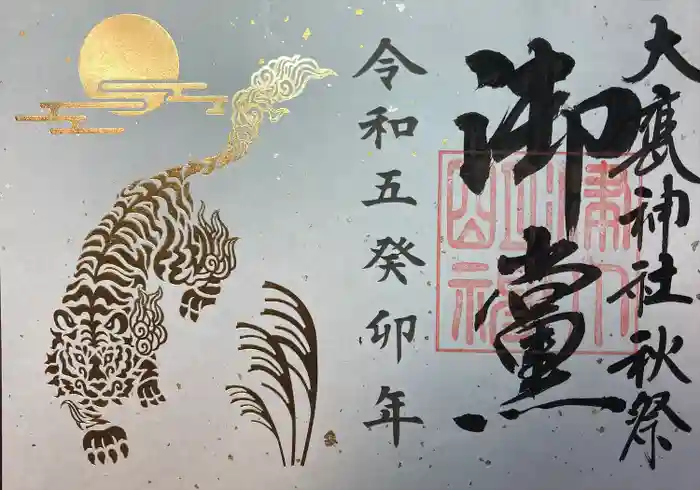 大甕神社秋祭
御黨
令和五癸卯年